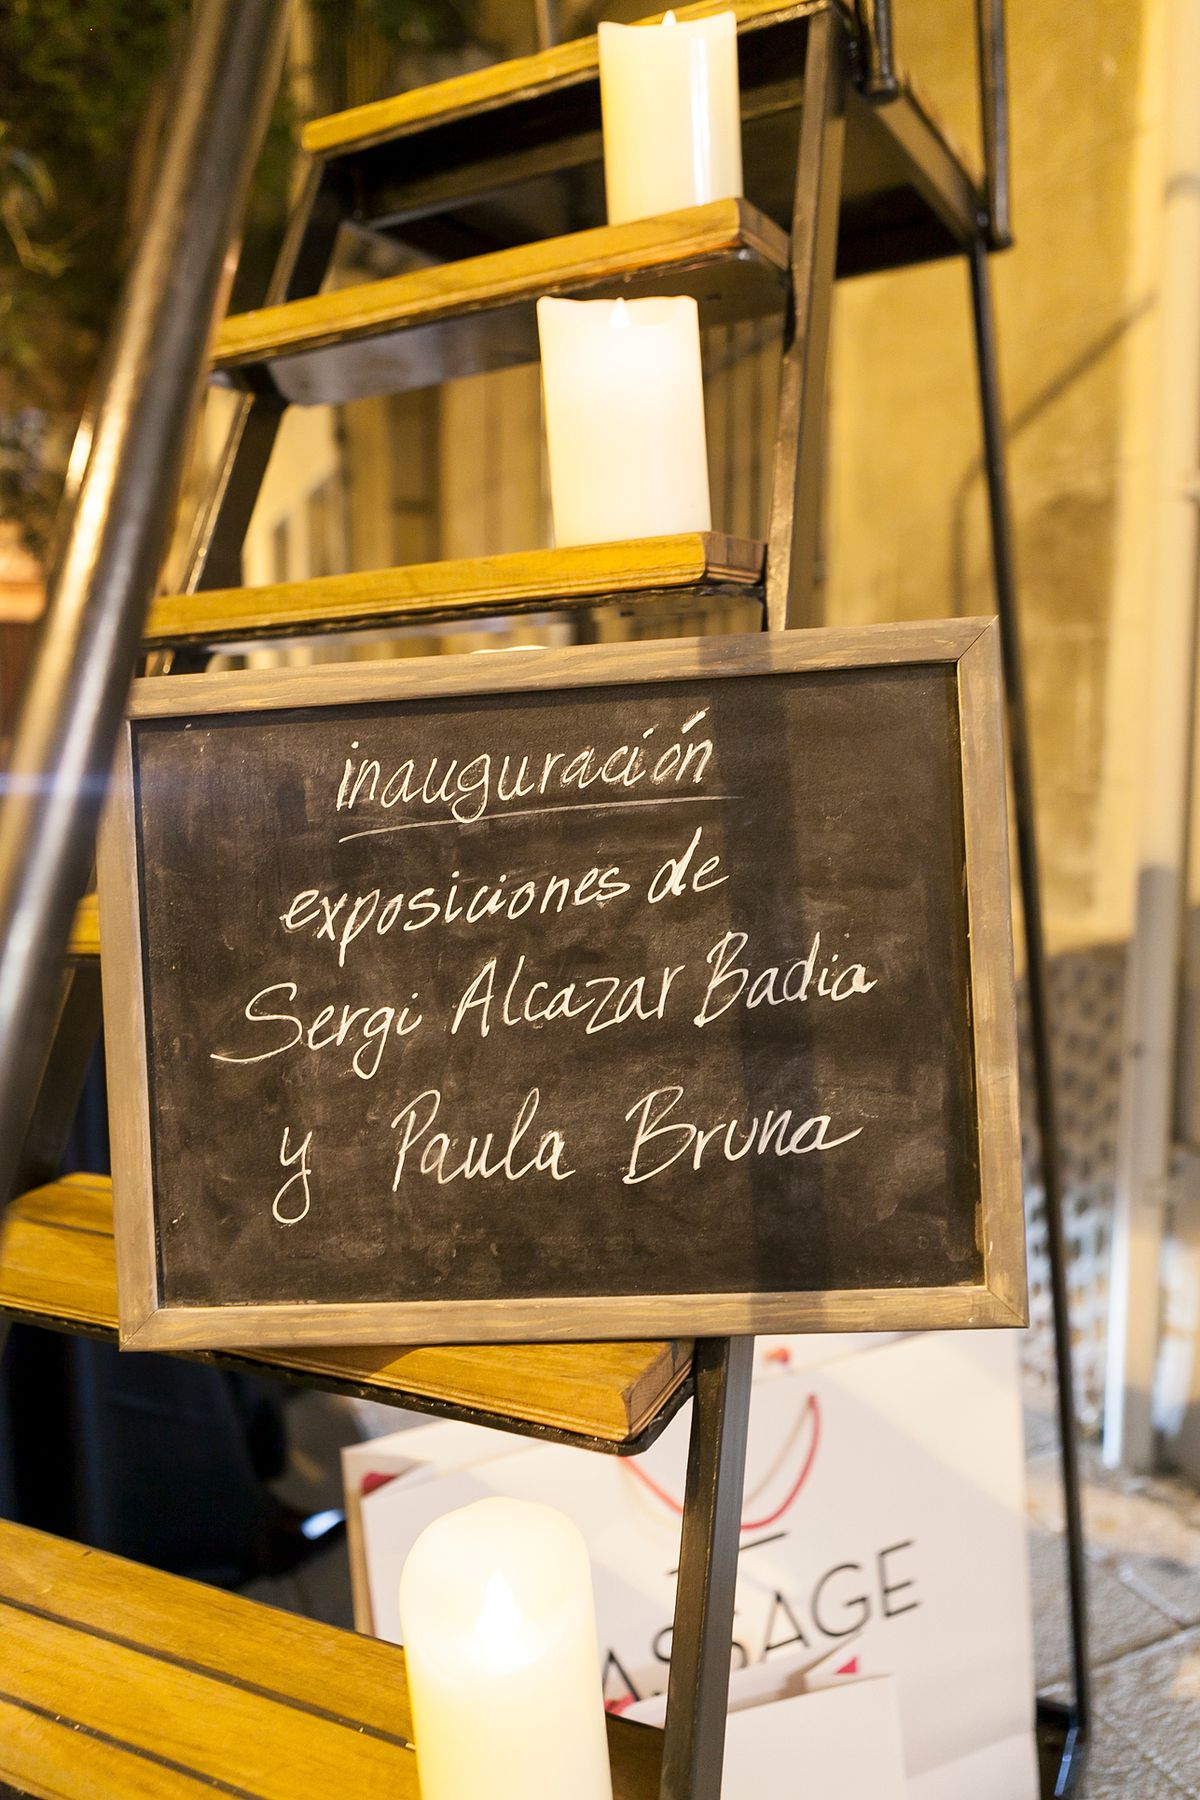 inauguración
exposiciones de
Sergi Alcazar Badia
y Paula Bruna